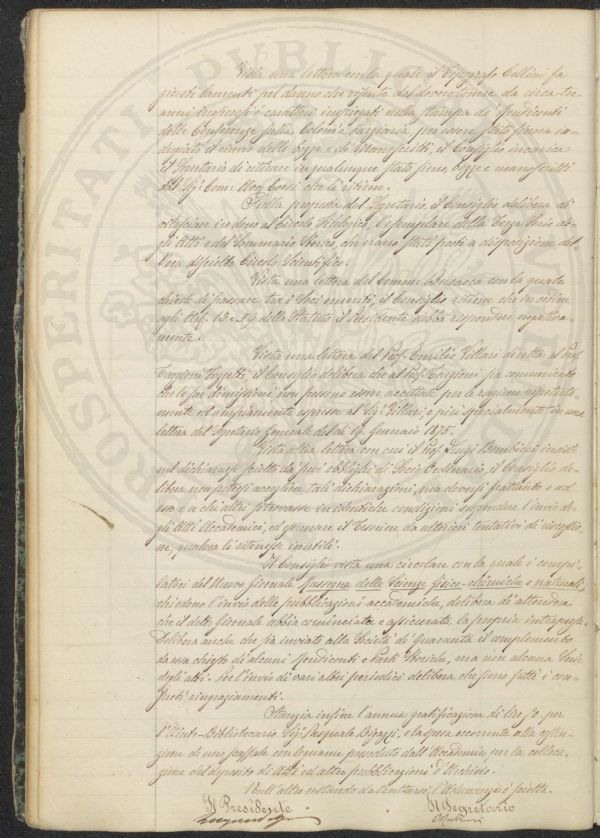 Vista una lettera con la quale il Tipografo Cellini fa
giusti lamenti pel danno che risente dal dover tenere da circa tre
anni i caratteri impiegati nella stampa di Rendiconti
delle Conferenze sulla Colonia parziaria per essere stato finora in-
dugiato il rinvio delle bozze e de' Manoscritti, il Consiglio incarica
il Segretario di ritirare in qualunque stato sieno, bozze e manoscritti
dal Sig. Comm. Avv. Corsi che li ritiene.
Sulla proposta del Segretario, il Consiglio delibera di
rilasciare in dono al Circolo Filologico, l'esemplare della Terza Serie de-
gli Atti e del Sommario Storico, che erano stati posti a disposizione del-
l'ora disciolto Circolo Scientifico.
Vista una lettera del Comm. Busacca con la quale
chiede di passare tra i Soci emeriti, il Consiglio ritiene che in ordine
agli Art. 13 e 59 dello Statuto il Presidente debba rispondere negativa-
mente.
Vista una lettera del Prof. Emilio Villari diretta al Prof.
Targioni Tozzetti, il Consiglio delibera che al Prof. Targioni fa comunicato
che le sue dimissioni non possono essere accettate per le ragioni ripetuta-
mente ed ampiamente espresse al Sig. Villari, e più specialmente in una
lettera del Segretario Generale del dì 19 Gennaio 1875.
Vista altra lettera con cui il Prof. Luigi Bombicci insiste
nel dichiararsi sciolto da suoi obblighi di Socio Ordinario, il Consiglio de-
libera non potersi accogliere tali dichiarazioni, ma doversi frattanto e ad
esso e a chi altri si trovasse in identiche condizioni sospendere l'invio de-
gli Atti Accademici, ed esonerare il Cassiere da ulteriori tentativi di riscossio-
ne, qualora li ritenesse inutili.
Il Consiglio vista una circolare con la quale i compi-
latori del Nuovo giornale Rassegna delle Scienze fisico-chimiche e naturali,
chiedono l'invio delle pubblicazioni accademiche, delibera di attendere
che il detto Giornale abbia cominciata e assicurata la propria intrapresa.
Delibera anche che sia inviato alla Società di Guaranta il complemento
da essa chiesto di alcuni Rendiconti e Parti Storiche, ma non alcuna Serie
degli atti. Per l'invio di vari altri periodici delibera che sieno fatti i con-
sueti ringraziamenti.
Stanzia infine l'annua gratificazione di lire 50 per
l'Aiuto-Bibliotecario Sig. Pasquale Bigazzi, e la spesa occorrente alla costru-
zione di uno scaffale con legname posseduto dall'Accademia per la colloca-
zione del deposito di Atti ed altre pubblicazioni d'Archivio.
Null'altro restando da trattarsi, l'Adunanza è sciolta.
Il Presidente Il Segretario